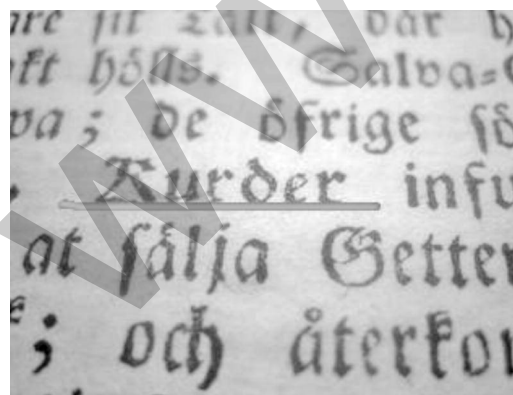 sit Tält, där
hölls. Salva-
va; de öfrige sö
Kurder infu
at sälja Getter
; och återkom